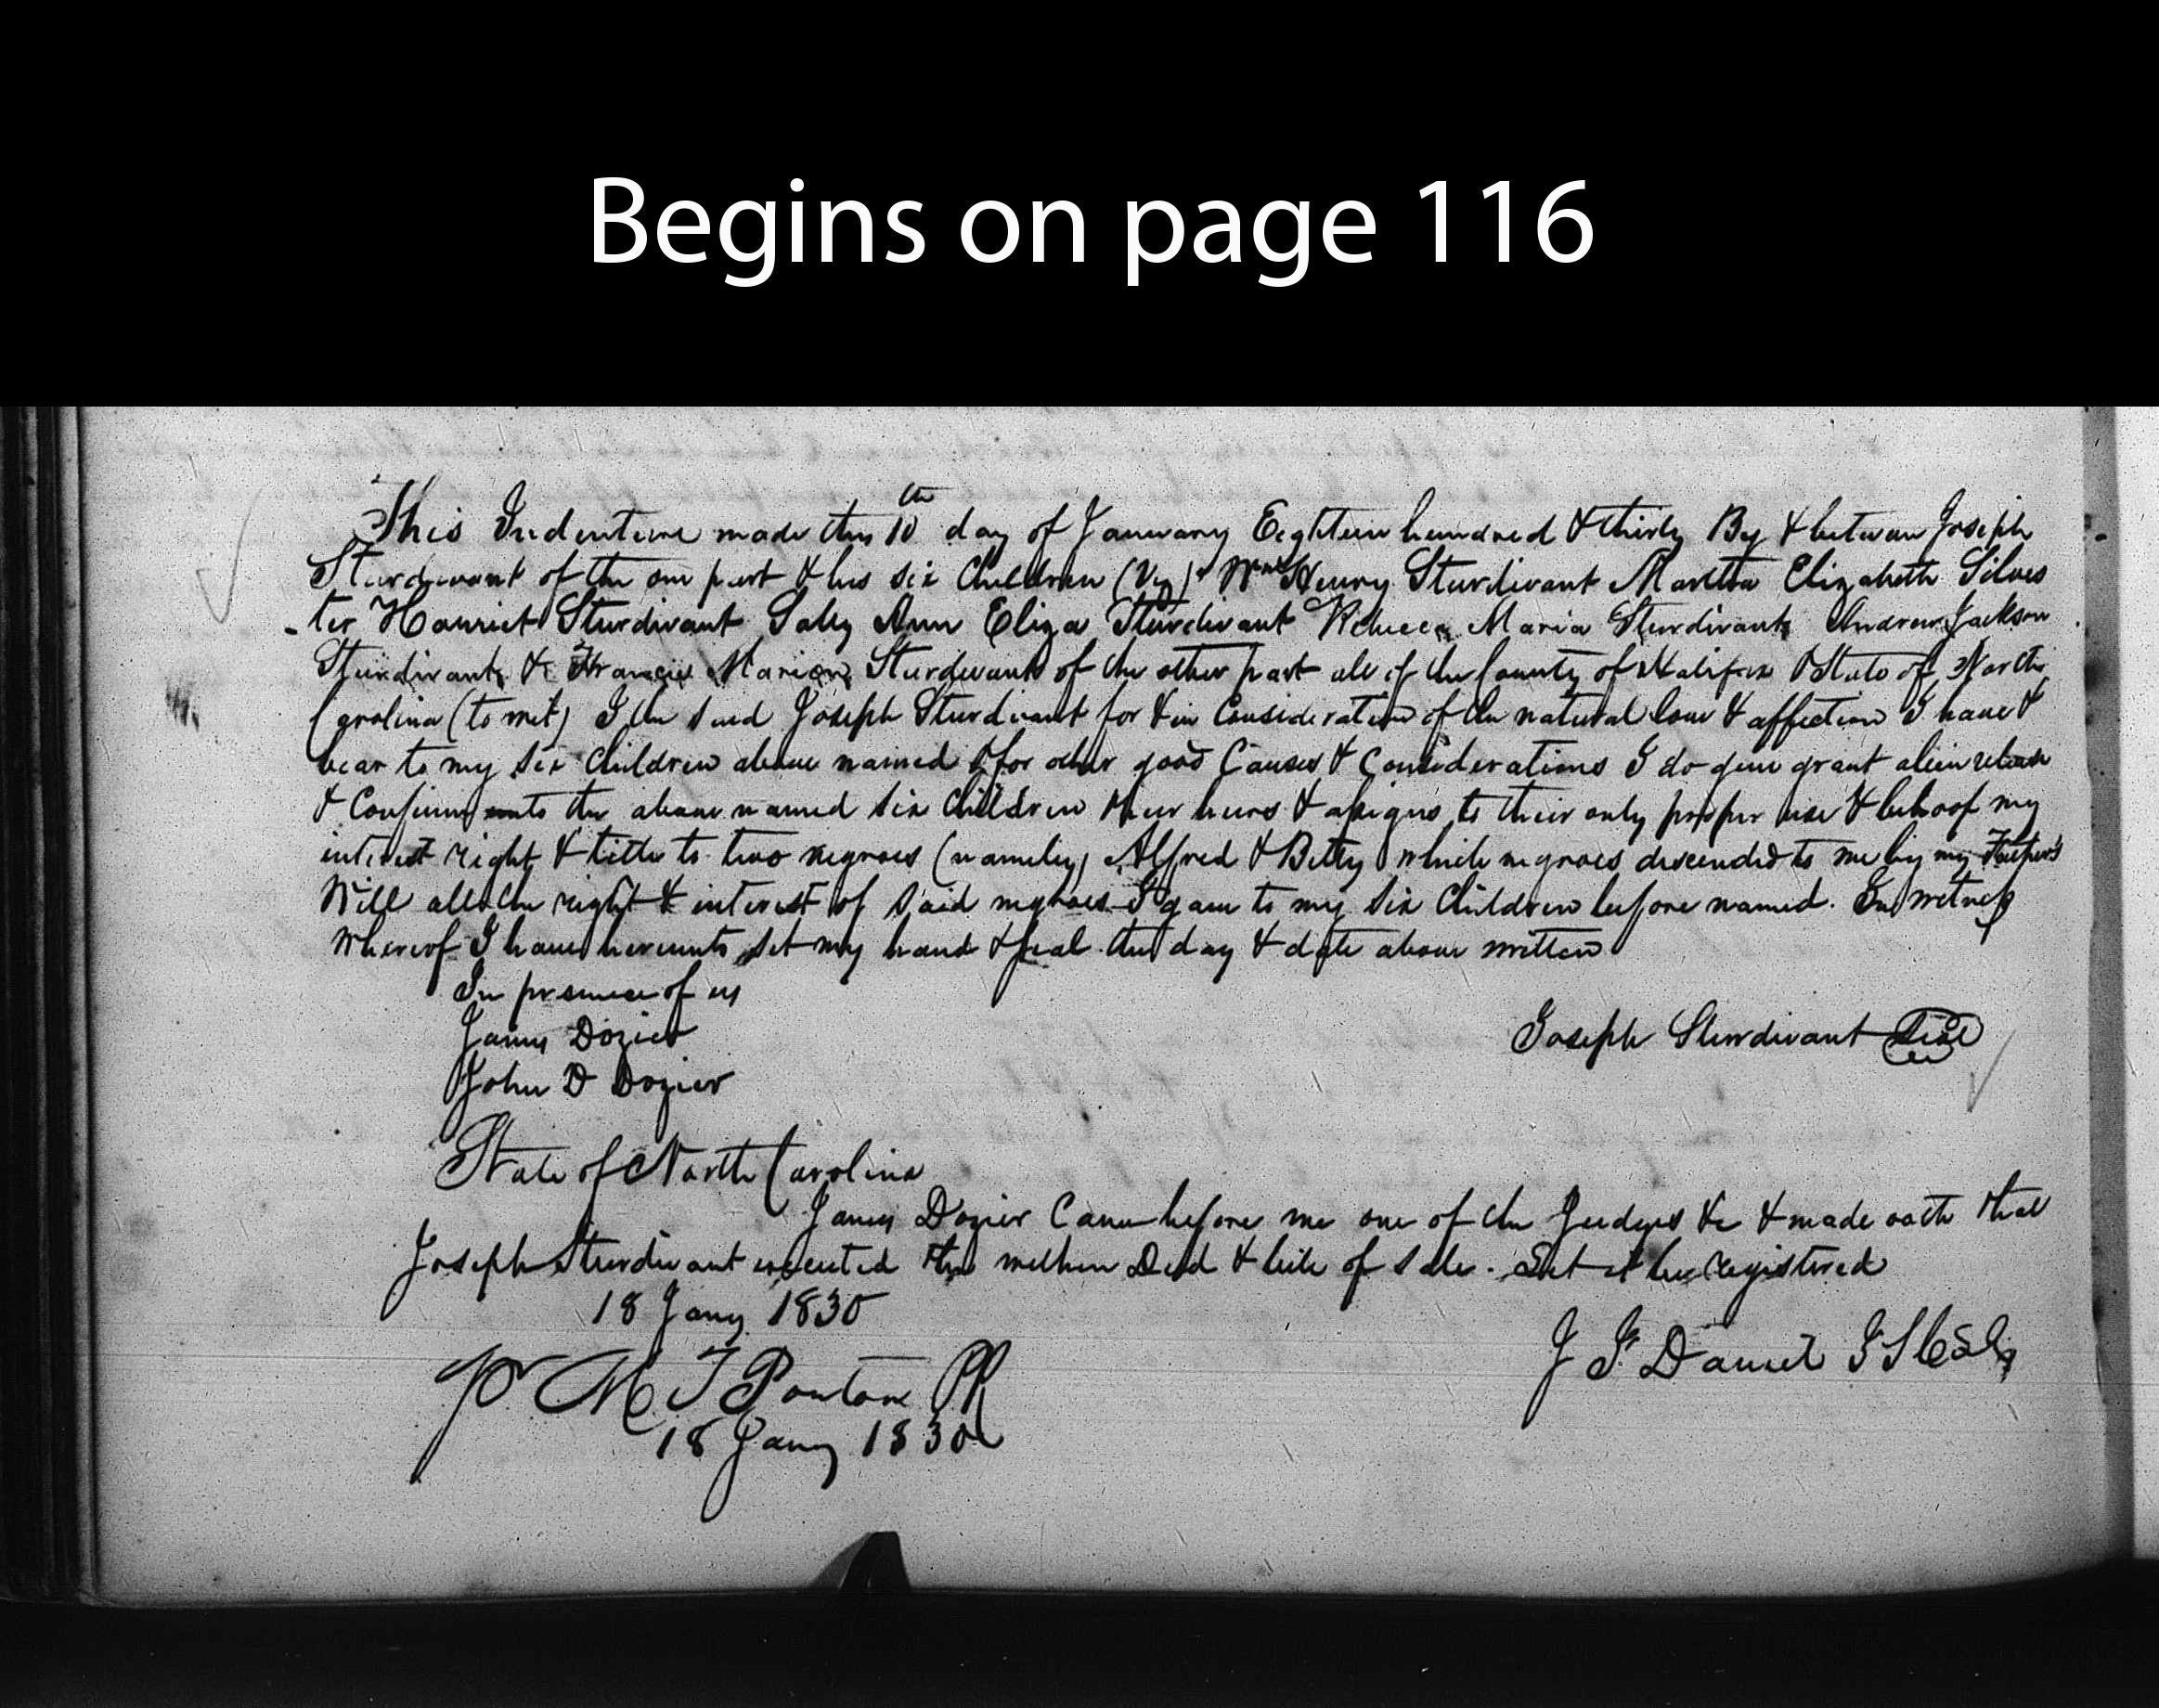 Begins on page 116
This Indenture made this 10th day of January Eighteen hundred & thirty By & between Joseph
Sturdivant of the one part & his six Children (Viz) Wm Henry Sturdivant Martha Elizabeth Silves
-ter Harriet Sturdivant Sally Ann Eliza Sturdivant Rebecca Maria Sturdivant Andrew Jackson
Sturdivant & Francis Marion Sturdivant of the other part all of the County of Halifax & State of North
Carolina (to wit) I the said Joseph Sturdivant for & in Consideration of the natural love & affection I have &
bear to my six Children above named & for other good Causes & Considerations I do give grant alein release
& Confirm unto the above named six Children their heirs & assigns to their only proper use & behoof my
interest right & title to two negroes (namely) Alfred & Betty which negroes descended to me by my Father's
Will all the right & interest of said negroes I gave to my six Children before named. In witness
whereof I have hereunto set my hand & seal the day & date above written
In presence of us
James Dozier
Joseph Sturdivant Seal
John D Dozier
State of North Carolina
James Dozier Came before me one of the Judges &c & made oath that
Joseph Sturdivant executed the within Deed & bile of sale. Let it be registered
18 Jany 1830
J J Daniel
M T Ponton PR
18 Jany 1830